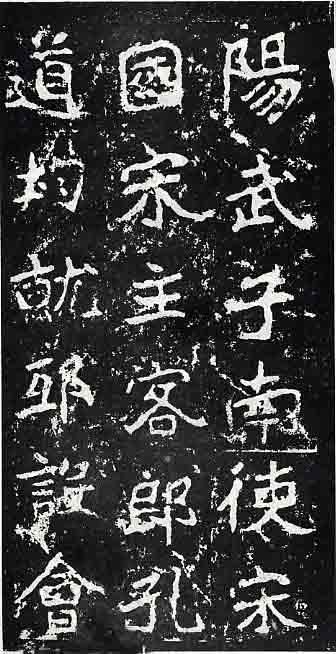 陽武子南使宋
國宋主客郎孔
道均就邸設會